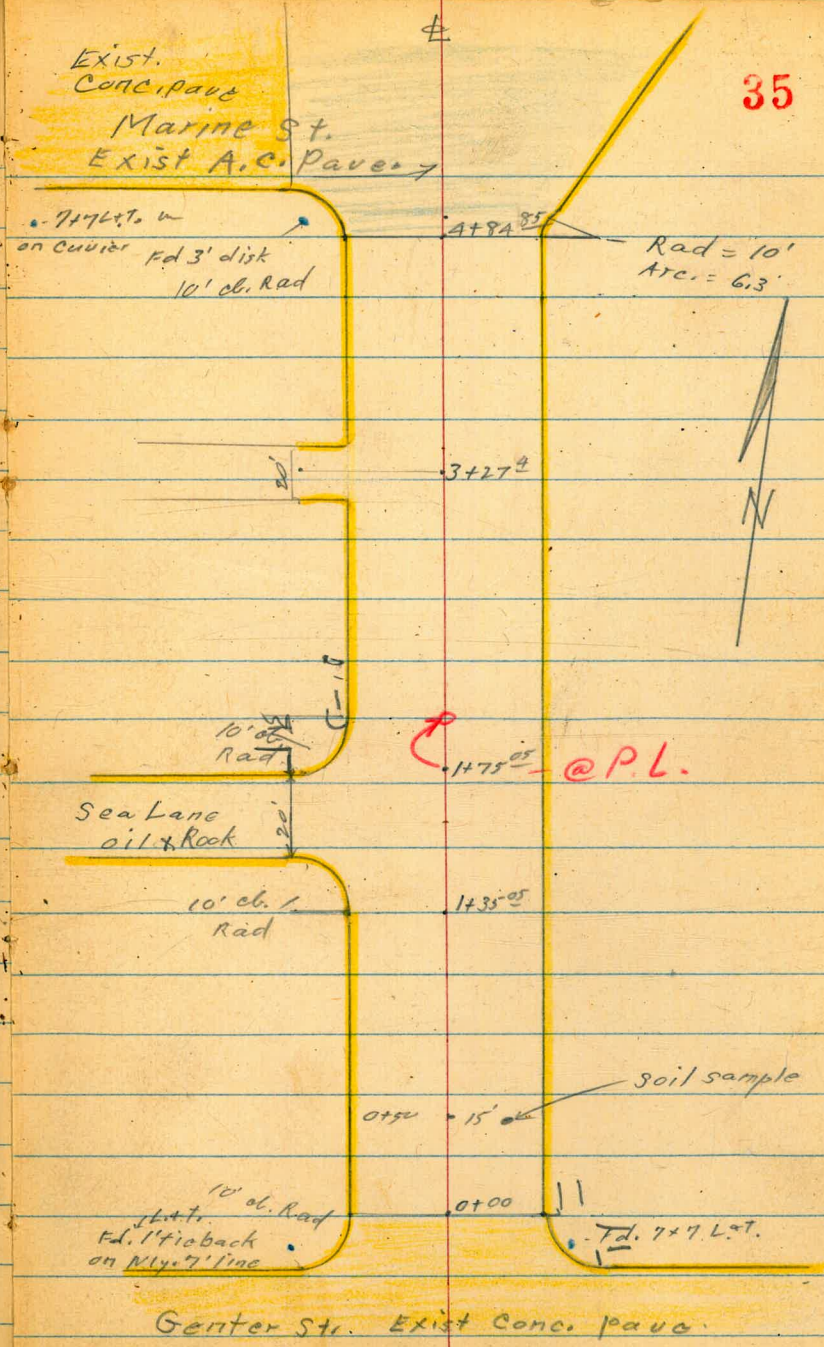 ℄
35
Exist.
Conc. pave
Marine St.
Exist A.C. Pave.
7+7 L+T.
on Cuvier
Fd 3' disk
10' cb. Rad
4+84 85
Rad = 10'
Arc. = 6.3'
20'
3+27 4
N
10' cb
Rad
1+75 05 - @ P.L.
Sea Lane
oil & Rock
20'
10' cb.
Rad
1+35 05
soil sample
0+50
15'
10' cb. Rad
0+00
L+T.
Fd. 1' tieback
on Nly. 7' line
Fd. 7+7 L+T.
Genter Str. Exist Conc. pave.